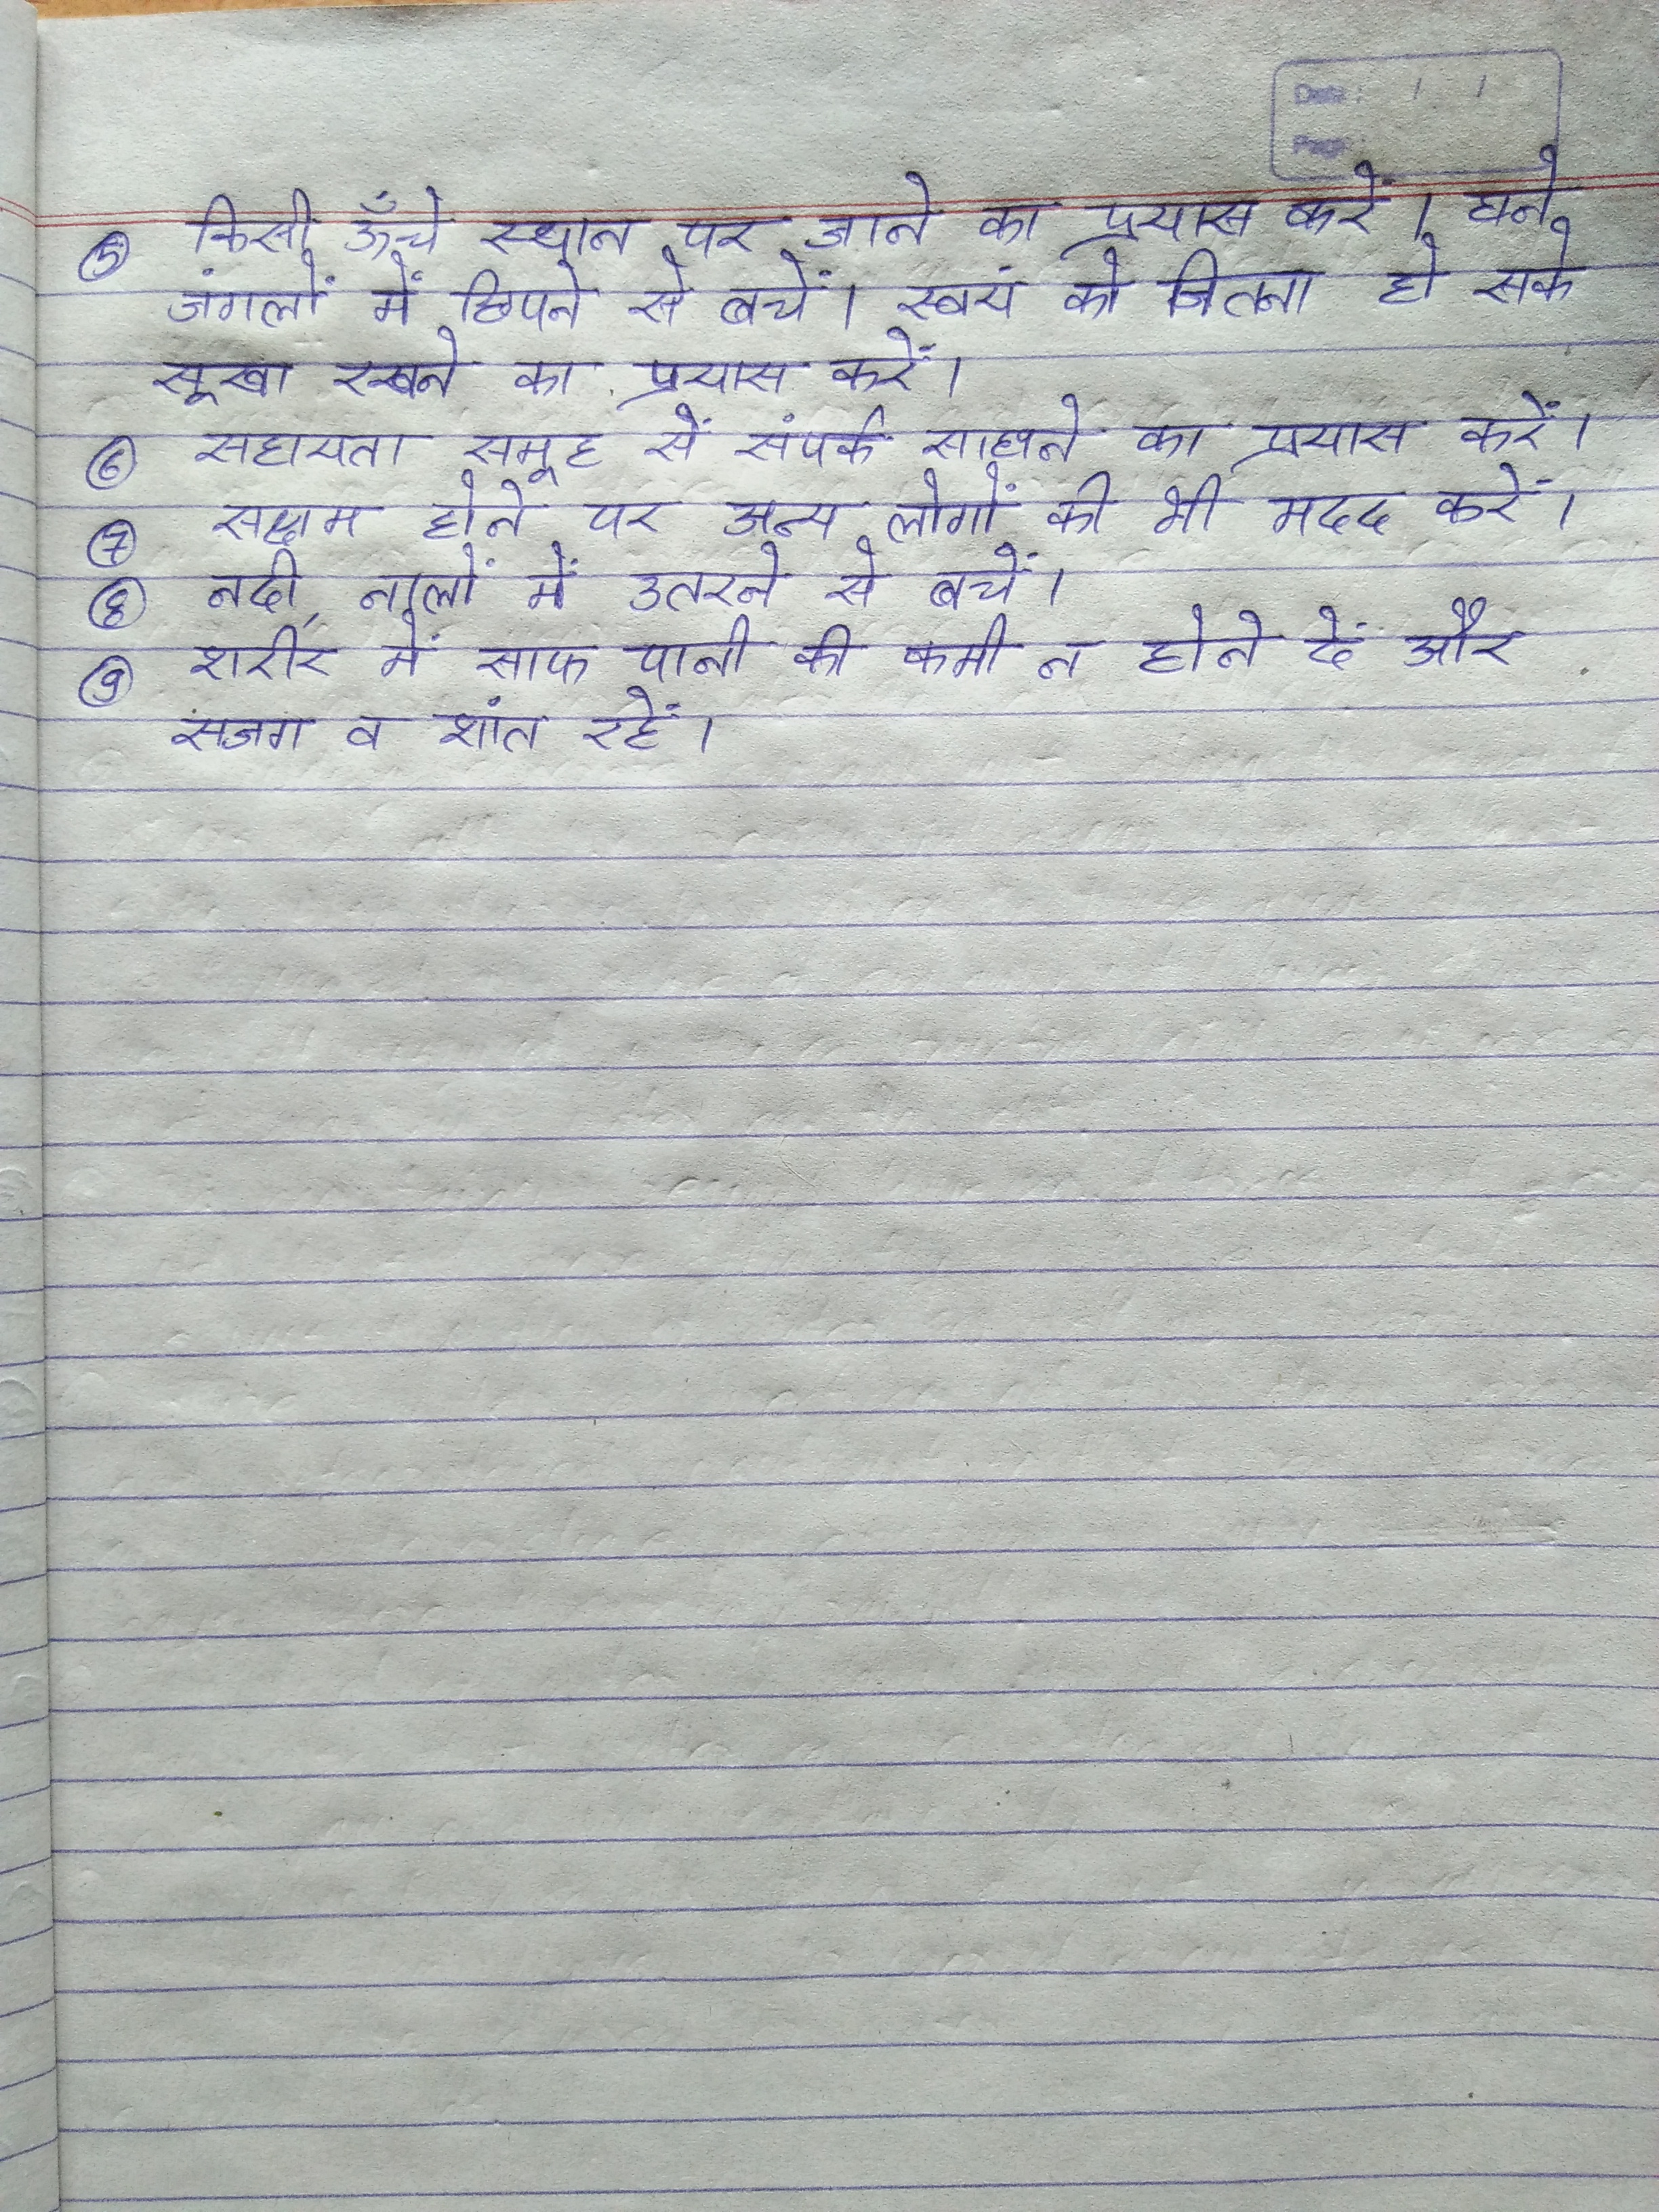 Date : / /
Page :
⑤ किसी ऊँचे स्थान पर जाने का प्रयास करें । घने
जंगलों में छिपने से बचें । स्वयं को जितना हो सके
सूखा रखने का प्रयास करें ।
⑥ सहायता समूह सें संपर्क साधने का प्रयास करें ।
⑦ सक्षम होने पर अन्य लोगों की भी मदद करें ।
⑧ नदी, नालों में उतरने से बचें ।
⑨ शरीर में साफ पानी की कमी न होने दें और
सजग व शांत रहें ।